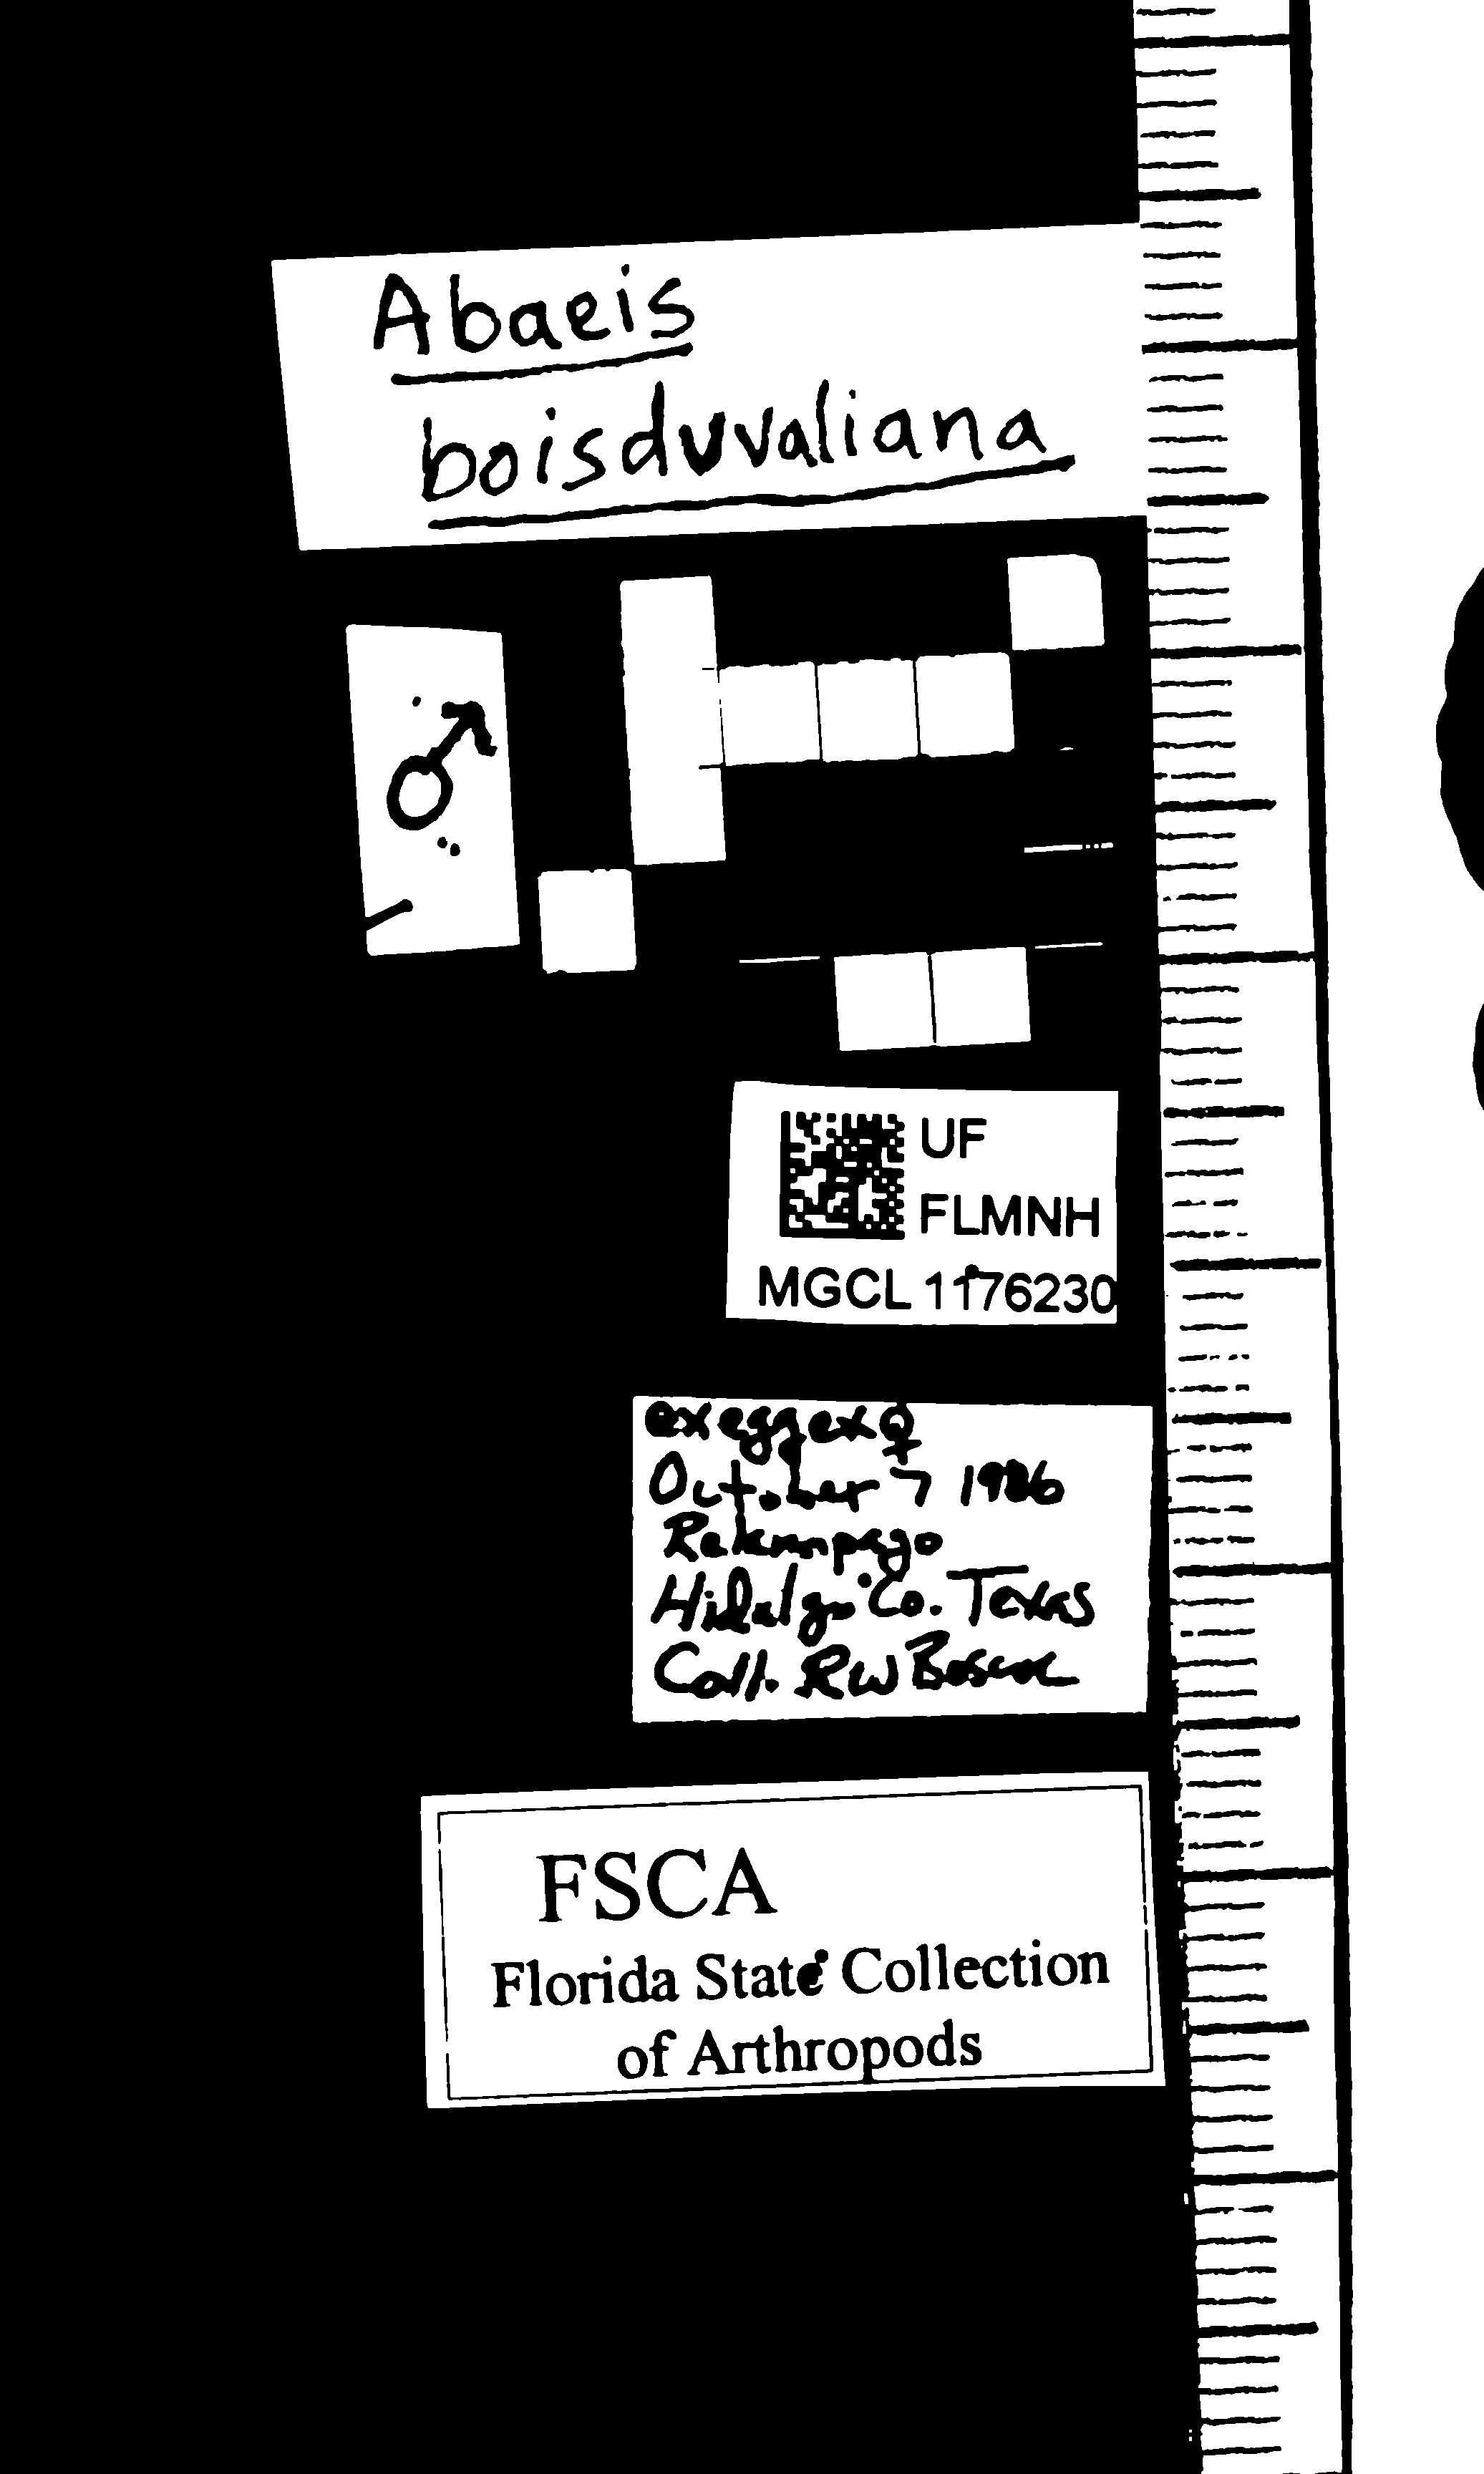 Abaeis
boisduvaliana
♂
UF
FLMNH
MGCL 1176230
ex egg ex ♀
October 7 1986
Relampago
Hidalgo Co. Texas
Coll. RW Boscoe
FSCA
Florida State Collection
of Arthropods